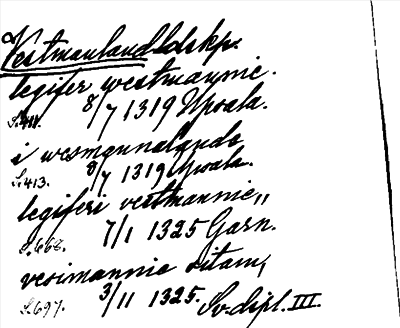 Vestmanland ldskp.
legifer westmannie.
S.411. 8/7 1319 Upsala.
i wesmannalande
S.413. 8/7 1319 Upsala.
legiferi vestmannie,,
S.668. 7/1 1325 Garn.
vesimannie
S.697. 3/11 1325. Sv. dipl. III.